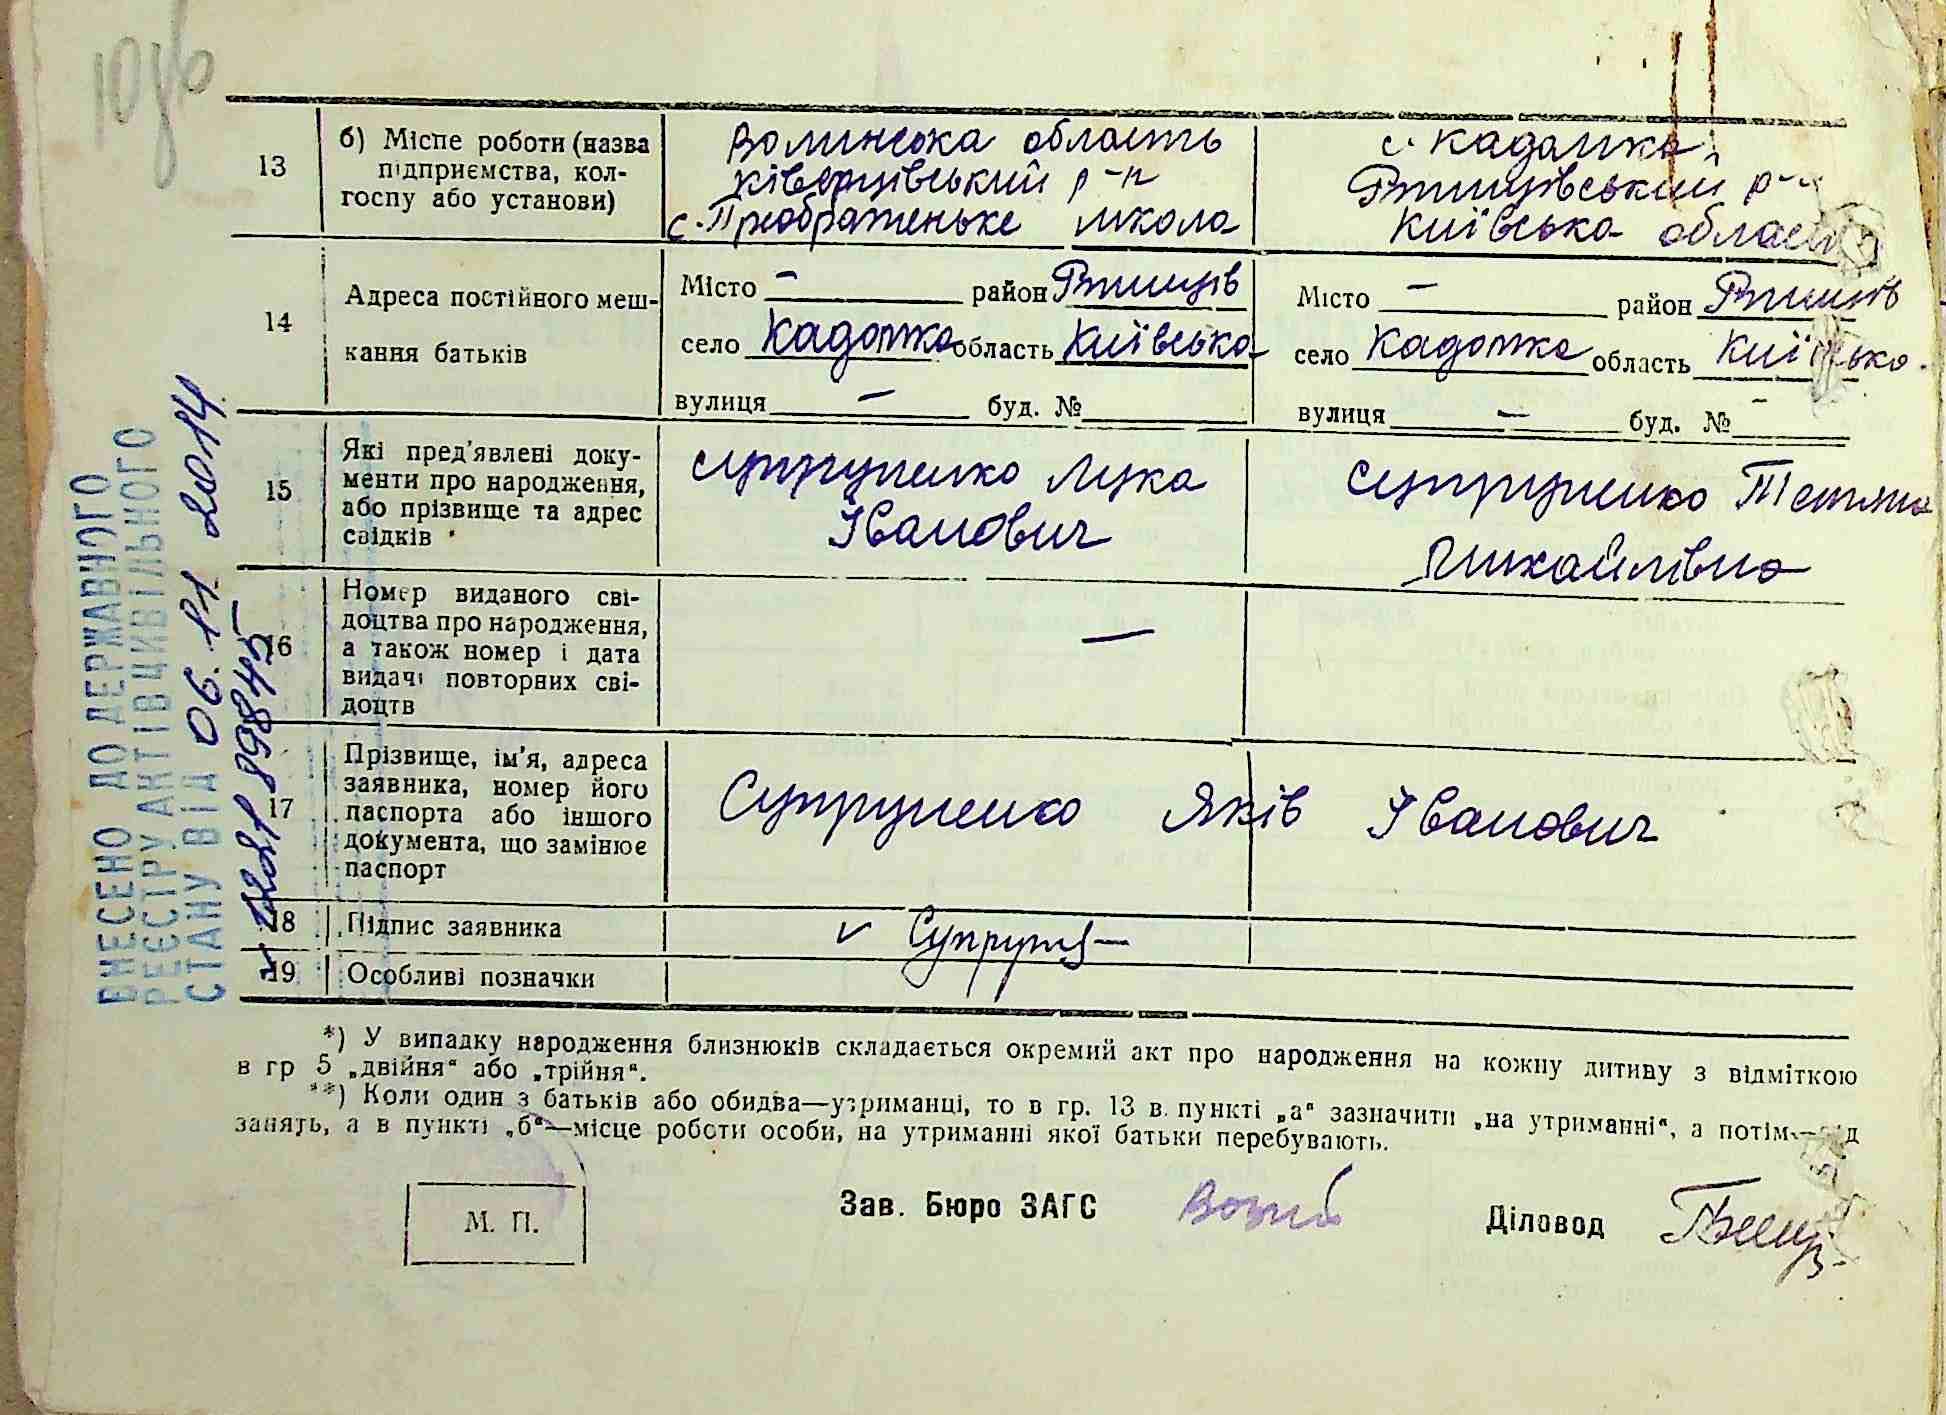 13
б) Місце роботи (назва
підприємства, кол-
госпу або установи)
Волинська область
Ківерцівський р-н
с. Преображеньке школа
с. Кадомка
Ржищівський р-
Київська област
14
Адреса постійного меш-
кання батьків
Місто — район Ржищів
село Кадомка область Київська
вулиця — буд. №
Місто — район Ржищів
село Кадомка область Київсько
вулиця — буд. № -
15
Які пред'явлені доку-
менти про народження,
або прізвище та адрес
свідків
Супруненко Лука
Іванович
Супруненко Тетяна
Михайлівна
16
Номер виданого сві-
доцтва про народження,
а також номер і дата
видачі повторних сві-
доцтв
—
17
Прізвище, ім'я, адреса
заявника, номер його
паспорта або іншого
документа, що замінює
паспорт
Супруненко Яків Іванович
18
Підпис заявника
19
Особливі позначки
*) У випадку народження близнюків складається окремий акт про народження на кожну дитину з відміткою
в гр 5 „двійня“ або „трійня“.
**) Коли один з батьків або обидва—утриманці, то в гр. 13 в. пункті „а“ зазначити „на утриманні“, а потім
занять, а в пункті „б“—місце роботи особи, на утриманні якої батьки перебувають.
М. П.
Зав. Бюро ЗАГС
Діловод
ВНЕСЕНО ДО ДЕРЖАВНОГО
РЕЄСТРУ АКТІВ ЦИВІЛЬНОГО
СТАНУ ВІД 06.11.2014